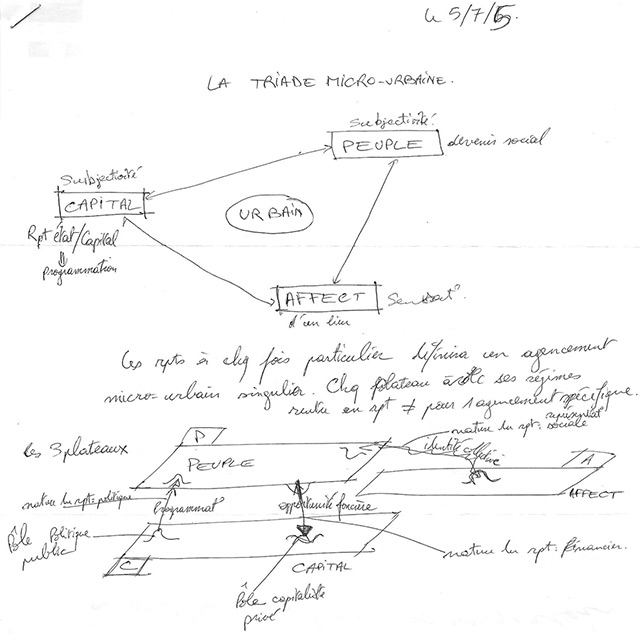 le 5/7/
LA TRIADE MICRO-URBAINE.
Subjectivité
PEUPLE devenir social
Subjectivité
CAPITAL
URBAIN
Rpt état/Capital
programmation
AFFECT
d'un lieu
Les rpts à chq fois particulier définira un agencement
micro-urbain singulier. Chq plateau à ses régimes
rentre en rpt ≠ pour 1 agencement spécifique.
nature du rpt: sociale
identité collective
les 3 plateaux
P
PEUPLE
A
AFFECT
nature du rpt: politique
Programmat
opportunité foncière
Pôle Politique
public
C
CAPITAL
nature du rpt: financier.
Pôle capitaliste
privé